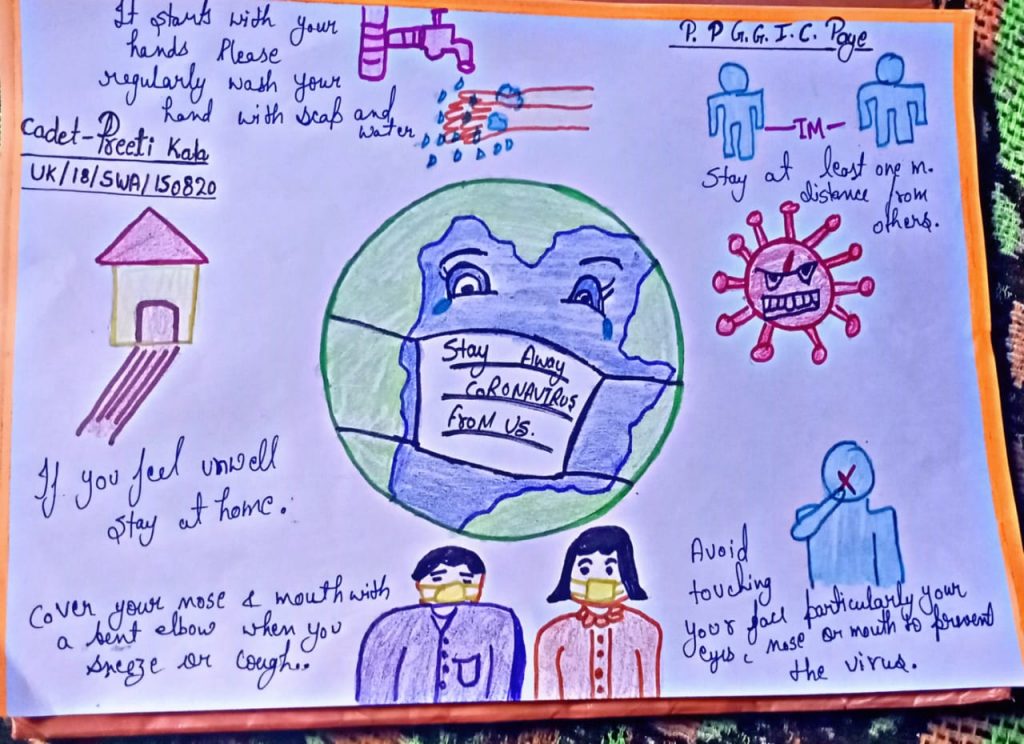 It starts with your
hands Please
regularly wash your
hand with soap and
water
Cadet-Preeti Kala
UK/18/SWA/150820
P. P G.G.I.C. Paye
1M
Stay at least one m.
distance from
others.
Stay Away
CORONAVIRUS
From US.
If you feel unwell
stay at home.
Cover your nose & mouth with
a bent elbow when you
sneeze or cough.
Avoid
touching
your face particularly your
eyes & nose or mouth to prevent
the virus.